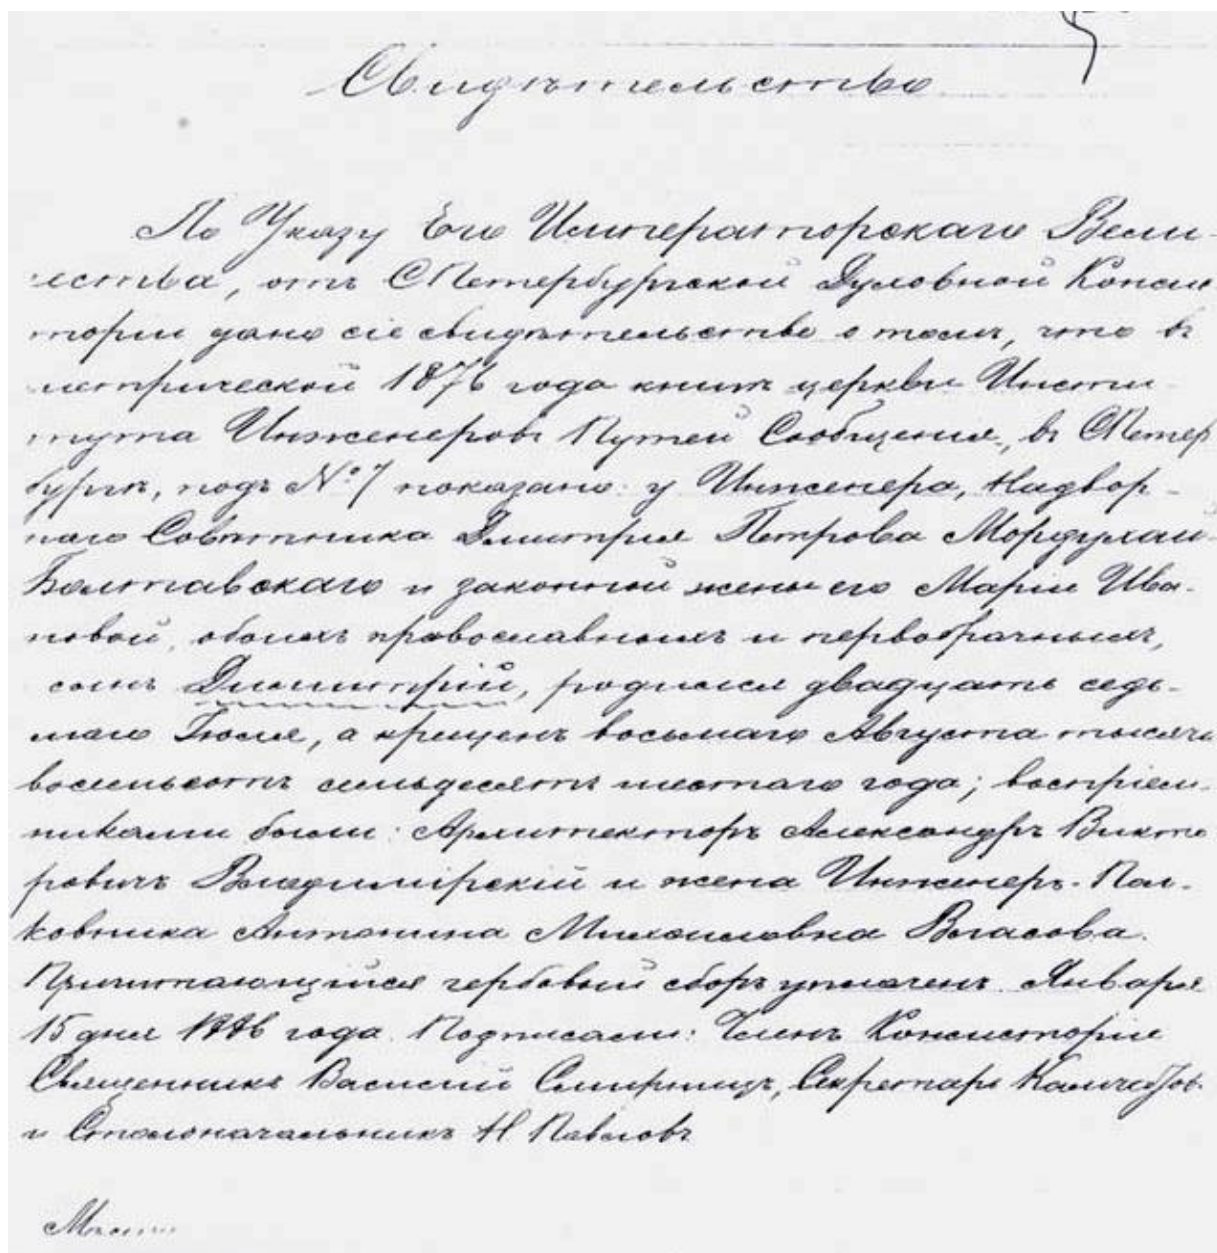 Свидѣтельство
По Указу Его Императорскаго Вели-
чества, отъ СПетербургской Духовной Консис
торіи дано сіе свидѣтельство о томъ, что въ
метрической 1876 года книгѣ церкви Инсти
тута Инженеровъ Путей Сообщения, въ СПетер
бургѣ, подъ № 7 показано: у Инженера, Надвор-
наго Совѣтника Дмитрія Петрова Мордухай-
Болтавскаго и законной жены его Маріи Ива-
новой, обоихъ православныхъ и первобрачныхъ,
сынъ Димитрій, родился двадцать седь-
маго Іюля, а крещенъ восьмаго Августа тысяча
восемьсотъ семьдесятъ шестаго года; воспріем-
никами были: Архитекторъ Александръ Викто
ровичъ Владимірскій и жена Инженеръ-Пол-
ковника Антонина Михаиловна Власова.
Причитающійся гербовый сборъ уплаченъ. Января
15 дня 1886 года. Подписали: Членъ Консисторіи
Священникъ Василій, Секретарь
и Столоначальникъ Н Павловъ